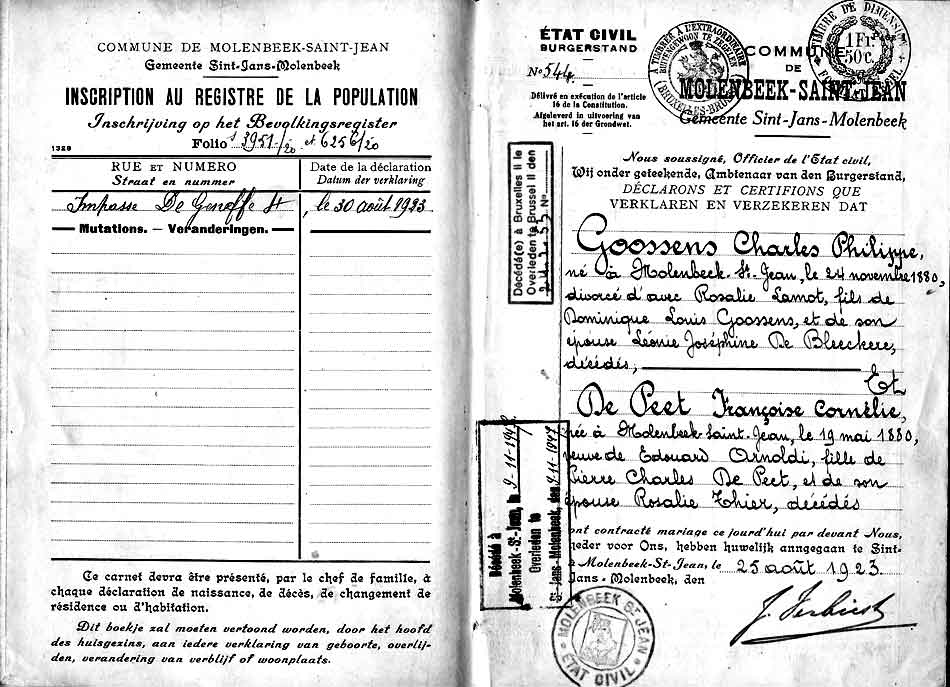 COMMUNE DE MOLENBEEK-SAINT-JEAN
Gemeente Sint-Jans-Molenbeek
INSCRIPTION AU REGISTRE DE LA POPULATION
Inschrijving op het Bevolkingsregister
Folio 3951/20 et 6256/20
1329
RUE ET NUMERO
Straat en nummer
Date de la déclaration
Datum der verklaring
Impasse De Genoffe St , le 30 août 1923
Mutations. — Veranderingen.
Ce carnet devra être présenté, par le chef de famille, à
chaque déclaration de naissance, de décès, de changement de
résidence ou d'habitation.
Dit boekje zal moeten vertoond worden, door het hoofd
des huisgezins, aan iedere verklaring van geboorte, overlij-
den, verandering van verblijf of woonplaats.
ÉTAT CIVIL
BURGERSTAND
No 544
Délivré en exécution de l'article
16 de la Constitution.
Afgeleverd in uitvoering van
het art. 16 der Grondwet.
A TIMBRER A L'EXTRAORDINAIRE
BUITENGEWOON TE ZEGELEN
TIMBRE DE DIMENSION
1 Fr.
50 c.
COMMUNE
DE
MOLENBEEK-SAINT-JEAN
Gemeente Sint-Jans-Molenbeek
Nous soussigné, Officier de l'Etat civil,
Wij ondergeteekende, Ambtenaar van den Burgerstand,
DÉCLARONS ET CERTIFIONS QUE
VERKLAREN EN VERZEKEREN DAT
Goossens Charles Philippe,
né à Molenbeek-St-Jean, le 24 novembre 1880,
divorcé d'avec Rosalie Lamot, fils de
Dominique Louis Goossens, et de son
épouse Léonie Joséphine De Bleeckere,
décédés,
Et
De Peet Françoise Cornélie,
née à Molenbeek-Saint-Jean, le 19 mai 1880,
veuve de Edouard Arnoldi, fille de
Pierre Charles De Peet, et de son
épouse Rosalie Thier, décédés
ont contracté mariage ce jourd'hui par devant Nous,
heder voor Ons, hebben huwelijk aangegaan te Sint-
à Molenbeek-St-Jean, le 25 août 1923
Jans-Molenbeek, den
Décédé(e) à Bruxelles II le
Overleden te Brussel II den
Décédé à
Molenbeek-St-Jean, le 9-11-1947
Overleden te
St-Jans-Molenbeek, den 9-11-1947
MOLENBEEK ST JEAN
ÉTAT CIVIL